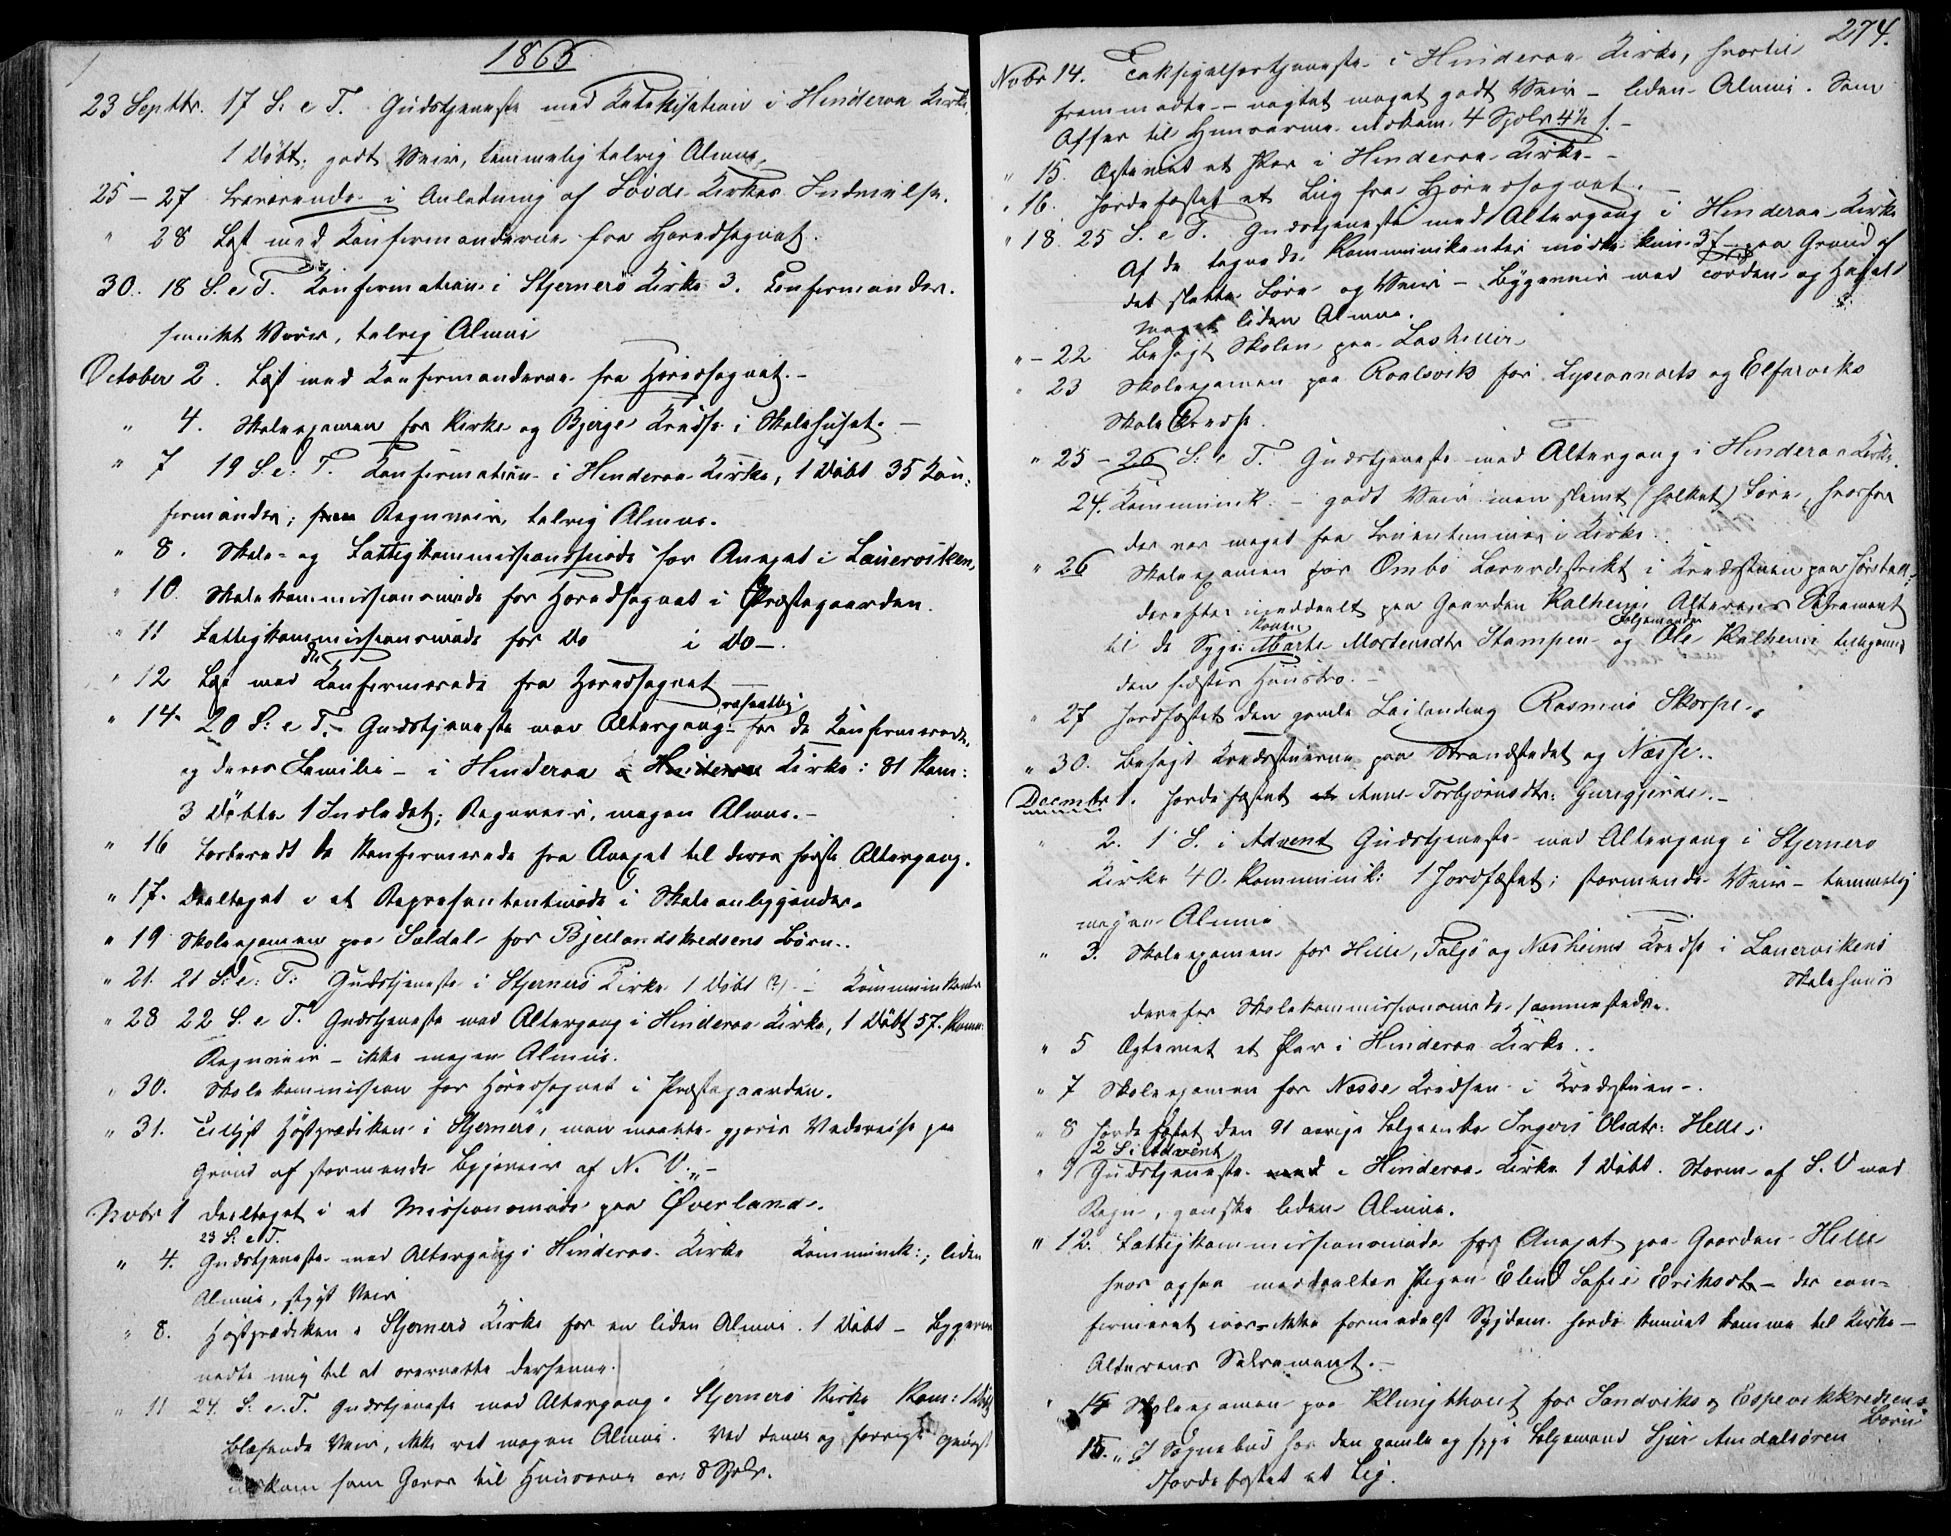 1866
23 Septbr. 17 S. e T. Gudstjeneste med Katekisation i Hinderaa Kirke,
1 Døbt, godt Veir, temmelig talrig Almue.
25 – 27 Fraværende i Anledning af Sövde Kirkes Indvielse.
" 28 Læst med Konfirmanderne fra Hovedsognet.
30. 18 S. e T. Konfirmation i Stjernerö Kirke 3. Confirmander.
smukt Veir, talrig Almue
October 2. Læst med Konfirmanderne fra Hovedsognet. –
" 4. Skoleexamen for Kirke og Bjerge Kredse i Skolehuset. –
" 7 19 S. e. T. Konfirmation i Hinderaa Kirke, 1 Døbt 35 Kon-
firmander; Regnveir, talrig Almue.
" 8. Skole- og Fattigkommissionsmøde for Anexet i Lauerviken,
" 10. Skolekommissionsmøde for Hovedsognet i Præstegaarden.
" 11 Fattigkommissionsmøde for Do i Do –.
" 12 Læst med de Konfirmerede fra Hovedsognet –
" 14. 20 S. e T. – Gudstjeneste med Altergang – for de Konfirmerede
og deres Familie – i Hinderaa Kirke: 81 Kom:
3 Døbte 1 Indledet; Regnveir, megen Almue. –
" 16 Forberedt de Konfirmerede fra Anexet til deres første Altergang.
" 17. Deeltaget i et Repræsentantmøde i Skoleanliggender.
" 19 Skoleexamen paa Saldal for Bjellandskredsens Børn..
" 21. 21 S. e. T: Gudstjeneste i Stjernerö Kirke 1 Døbt (?) – Kommunikanter
" 28 22 S. e T. Gudstjeneste med Altergang i Hinderaa Kirke, 1 Døbt 57. Komm:
Regnveir – ikke megen Almue.
" 30. Skolekommission for Hovedsognet i Præstegaarden.
" 31. Tillyst Høstprædiken i Stjernerö, men maatte gjøre Vendereise paa
Grund af stormende Bygeveir af N. V. –
Nvbr 1 Deeltaget i et Missionsmøde paa Øverland.
23 S. e T.
" 4. Gudstjeneste med Altergang i Hinderaa Kirke Kommunik:; liden
Almue, stygt Veir
" 8. Høstprædiken i Stjernerö Kirke for en liden Almue. 1 Døbt – Bygeveir
nødte mig til at overnatte dersteds.
" 11 24. S. e. T. Gudstjeneste med Altergang i Stjernerö Kirke Kom: 1 Døbt
blæsende Veir, ikke ret megen Almue. Ved denne og forrige Gudstj
indkom som Gaver til Husarme 8 Spdr.
274.
Nvbr 14. Taksigelsestjeneste i Hinderaa Kirke, hvortil
fremmødte – uagtet meget godt Veir – liden Almue. Som
Offer til Husarme indkom 4 Spdlr 4½ s. –
" 15. Ægteviet et Par i Hinderaa Kirke. –
" 16. Jordfæstet et Liig fra Hovedsognet. –
" 18. 25 S. e T. Gudstjeneste med Altergang i Hinderaa Kirke
Af de tegnede Kommunikanter mødte kun 37 – paa Grund af
det slette Føre og Veir – Bygeveir med Torden og Hagel
meget liden Almue.
" – 22 Besøgt Skolen paa Lasteller
" 23 Skoleexamen paa Roalsvik for Lysevannets og Elfarviks
Skole Kredse.
" 25 – 26 S. e T. Gudstjeneste med Altergang i Hinderaa Kirke.
24. Kommunik. – godt Veir men slemt (holket) Føre, hvorfor
der var meget faa Fruentimmer i Kirke.
" 26 Skoleexamen for Ombo Lærerdistrikt i Kredsstuen paa Jørstad.
derefter meddeelt paa Gaarden Kalheim Alterens Sakrament
til de Syge: Konen Marte Mortensdtr Stampen – og Folgemanden Ole Kalheim tilligemed
den sidstes Hustro. –
" 27 Jordfæstet den gamle Leilænding Rasmus Skorpe.
" 30. Besøgt Kredsstuerne paa Strandstedet og Næsse..
Decmbr 1. Jordfæstet Anne Torbjørnsdtr: Guregjerde. –
" 2. 1 S. i Advent Gudstjeneste med Altergang i Stjernero
Kirke 40. Kommunik: 1 Jordfæstet; stormende Veir – temmelig
megen Almue
" 3. Skoleexamen for Hille, Talgö og Næsheims Kredse i Lauervikens
Skolehuus
derefter Skolekommissionsmøde sammesteds.
" 5 Ægteviet et Par i Hinderaa Kirke..
" 7 Skoleexamen for Næsse Kredsen i Kredsstuen –.
" 8 Jordfæstet den 91 aarige Folgeenke Ingeri Olsdtr: Helle.
2 S. i Advent
" 9 Gudstjeneste i Hinderaa Kirke 1 Døbt. Storm af S. V med
Regn, ganske liden Almue.
" 12. Fattigkommissionsmøde for Anexet paa Gaarden Hille
hvor ogsaa meddeeltes Pigen Elend Sofie Eriksdt – der con-
firmeret ivaar ikke formedelst Sygdom havde kunnet komme til Kirke –
Alterens Sakrament. –
" 14 Skoleexamen paa Klungtveit for Sandviks og Espevikkredsens
Børn
15. " I Sognebud hos den gamle og syge Folgemand Sjur Amdalsøren
Jordfæstet et Lig.